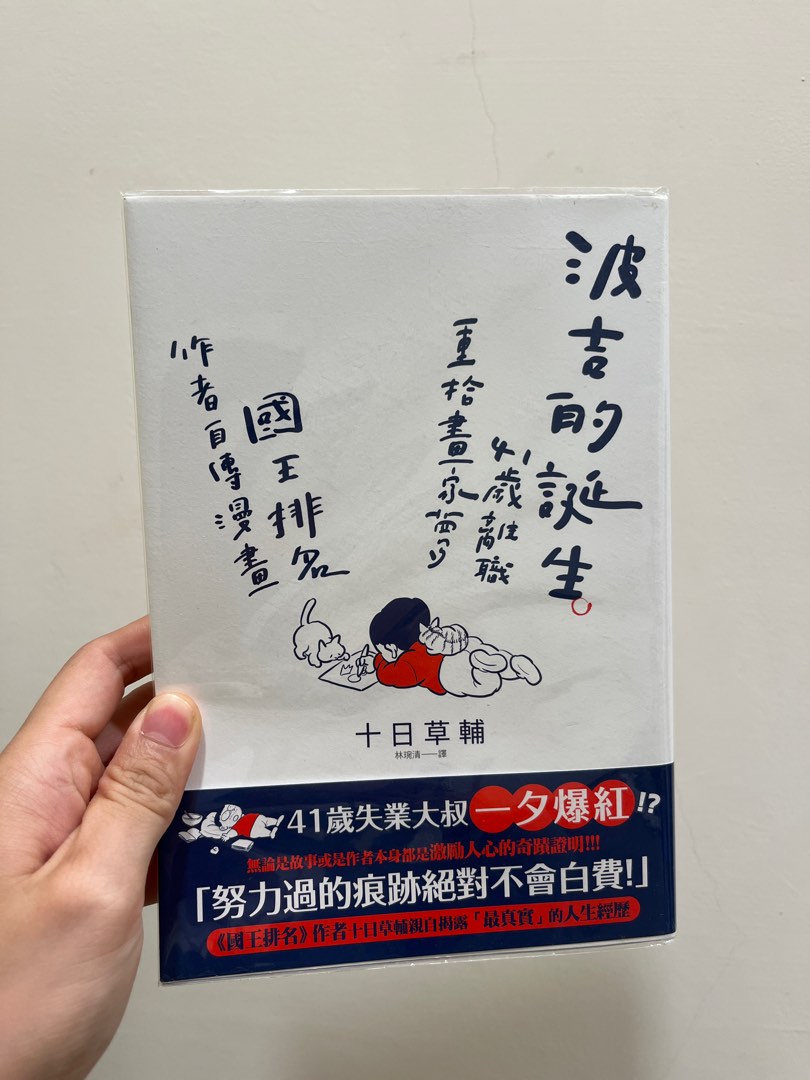 波吉的誕生。
41歲離職
重拾畫家夢
國王排名
作者自傳漫畫
十日草輔
林琬清——譯
41歲失業大叔一夕爆紅!?
無論是故事或是作者本身都是激勵人心的奇蹟證明!!!
「努力過的痕跡絕對不會白費!」
《國王排名》作者十日草輔親自揭露「最真實」的人生經歷